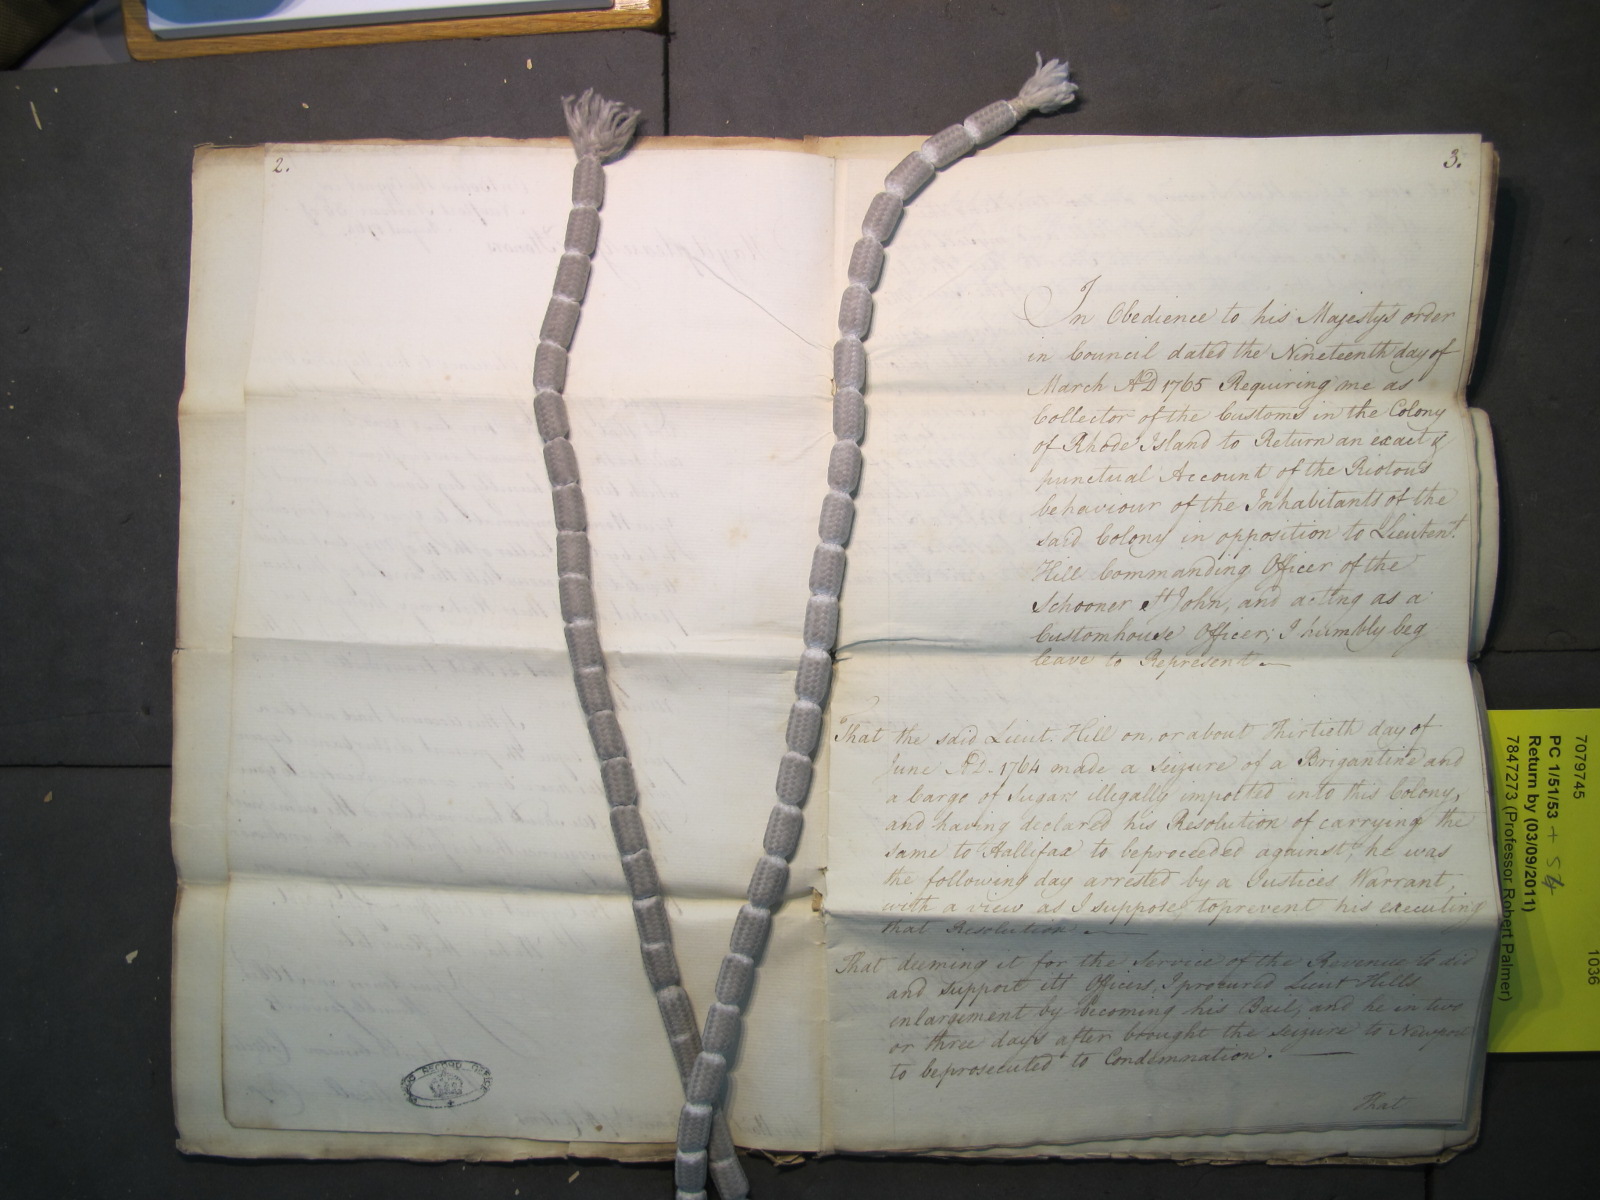 2.
3.
In Obedience to his Majestys order
in Council dated the Nineteenth day of
March AD 1765 Requiring me as
Collector of the Customs in the Colony
of Rhode Island to Return an exact &
punctual Account of the Riotous
behaviour of the Inhabitants of the
said Colony in opposition to Lieutent.
Hill Commanding Officer of the
Schooner St John, and acting as a
Customhouse Officer; I humbly beg
leave to Represent.
That the said Lieut. Hill on, or about Thirtieth day of
June AD. 1764 made a Seizure of a Brigantine and
a Cargo of Sugars illegally imported into this Colony,
and having declared his Resolution of carrying the
same to Hallifax to beproceeded against, he was
the following day arrested by a Justices Warrant,
with a view as I suppose, toprevent his executing
that Resolution.
That deeming it for the Service of the Revenue to aid
and support its Officers, I procured Lieut Hills
enlargement by becoming his Bail; and he in two
or three days after brought the Seizure to Newport
to beprosecuted to Condemnation.
That
PUBLIC RECORD OFFICE
7079745
1036
PC 1/51/53 + 54
Return by (03/09/2011)
7847273 (Professor Robert Palmer)